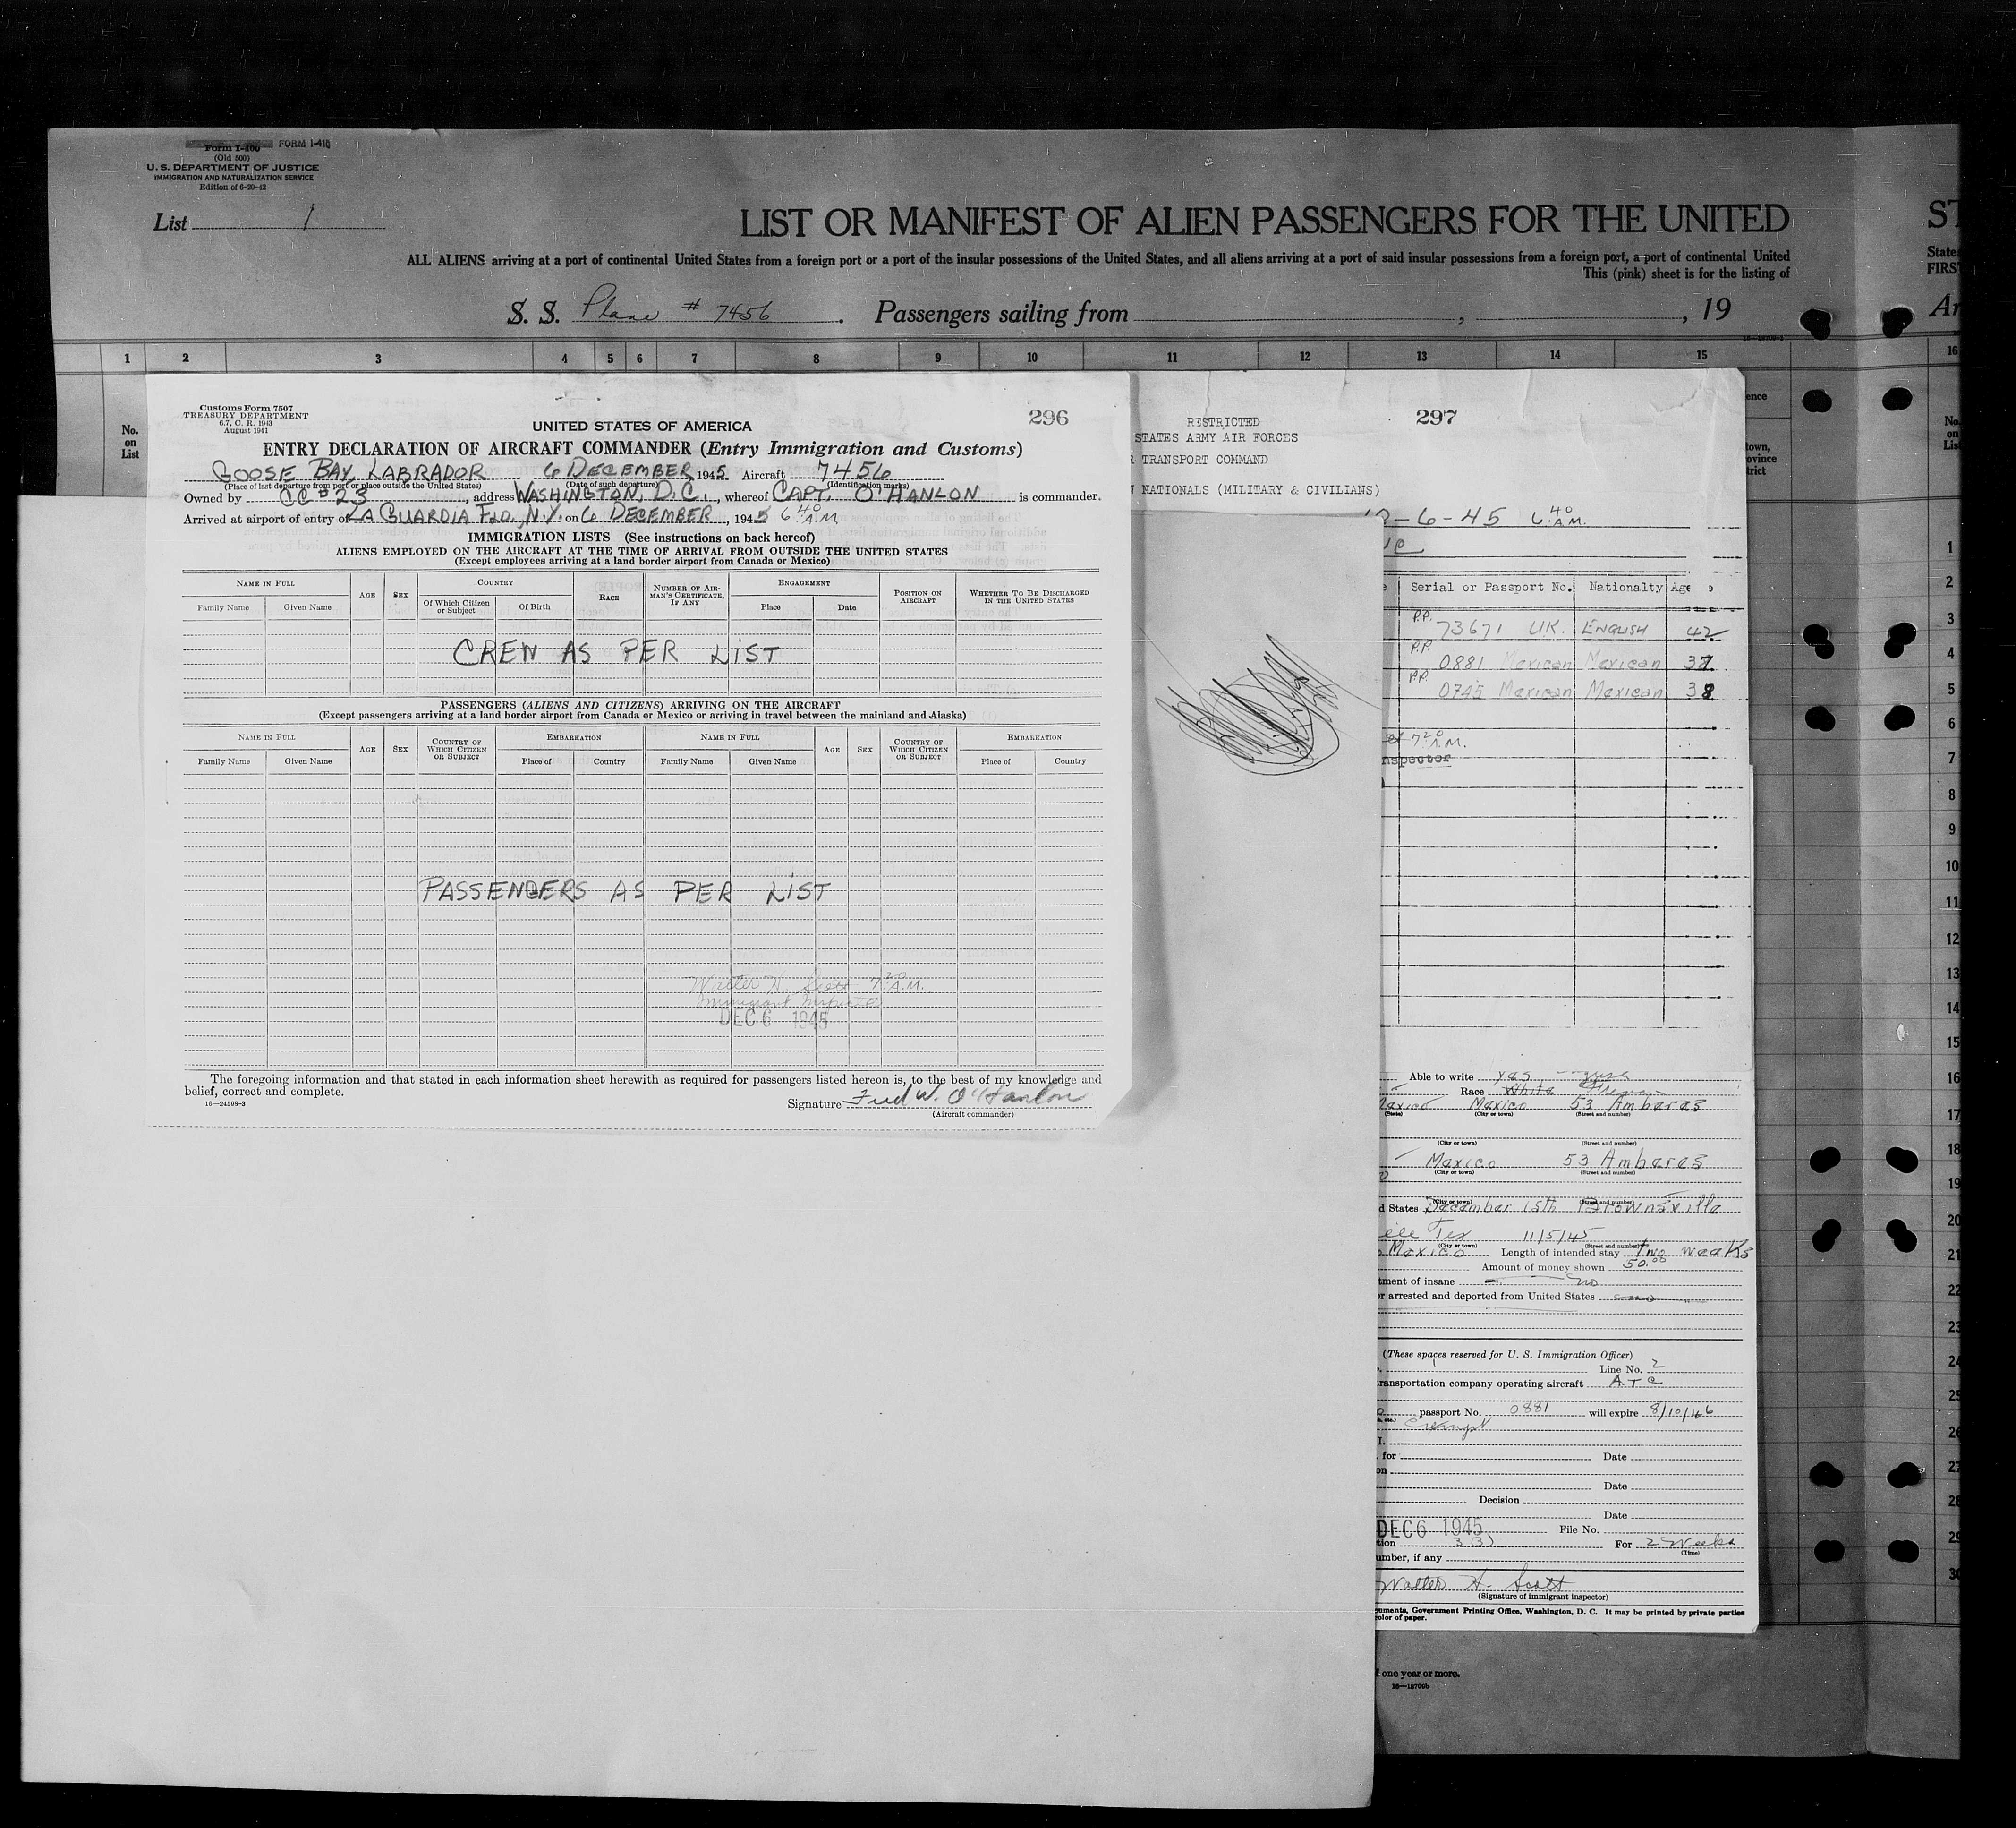 Form I-400 FORM I-418
(Old 500)
U. S. DEPARTMENT OF JUSTICE
IMMIGRATION AND NATURALIZATION SERVICE
Edition of 6-20-42
List 1
LIST OR MANIFEST OF ALIEN PASSENGERS FOR THE UNITED
ST
ALL ALIENS arriving at a port of continental United States from a foreign port or a port of the insular possessions of the United States, and all aliens arriving at a port of said insular possessions from a foreign port, a port of continental United
State
This (pink) sheet is for the listing of
FIRS
S. S. Plane # 7456. Passengers sailing from , , 19
Ar
1 2 3 4 5 6 7 8 9 10 11 12 13 14 15
16
No. on List
Customs Form 7507
TREASURY DEPARTMENT
6.7, C. R. 1943
August 1941
296
UNITED STATES OF AMERICA
ENTRY DECLARATION OF AIRCRAFT COMMANDER (Entry Immigration and Customs)
GOOSE BAY, LABRADOR 6 DECEMBER, 1945 Aircraft 7456
(Place of last departure from port or place outside the United States) (Date of such departure) (Identification marks)
Owned by CC #23, address WASHINGTON, D.C., whereof CAPT. O'HANLON is commander.
Arrived at airport of entry of LA GUARDIA FLD., N.Y. on 6 DECEMBER, 1945 6 40 A.M.
IMMIGRATION LISTS (See instructions on back hereof)
ALIENS EMPLOYED ON THE AIRCRAFT AT THE TIME OF ARRIVAL FROM OUTSIDE THE UNITED STATES
(Except employees arriving at a land border airport from Canada or Mexico)
NAME IN FULL AGE SEX COUNTRY RACE NUMBER OF AIRMAN'S CERTIFICATE, IF ANY ENGAGEMENT POSITION ON AIRCRAFT WHETHER TO BE DISCHARGED IN THE UNITED STATES
Family Name Given Name Of Which Citizen or Subject Of Birth Place Date
CREW AS PER LIST
PASSENGERS (ALIENS AND CITIZENS) ARRIVING ON THE AIRCRAFT
(Except passengers arriving at a land border airport from Canada or Mexico or arriving in travel between the mainland and Alaska)
NAME IN FULL AGE SEX COUNTRY OF WHICH CITIZEN OR SUBJECT EMBARKATION NAME IN FULL AGE SEX COUNTRY OF WHICH CITIZEN OR SUBJECT EMBARKATION
Family Name Given Name Place of Country Family Name Given Name Place of Country
PASSENGERS AS PER LIST
Walter H. Scott 7 20 A.M.
Immigrant Inspector
DEC 6 1945
The foregoing information and that stated in each information sheet herewith as required for passengers listed hereon is, to the best of my knowledge and
belief, correct and complete.
16—24598-3
Signature Fred W. O'Hanlon
(Aircraft commander)
RESTRICTED 297
STATES ARMY AIR FORCES
TRANSPORT COMMAND
NATIONALS (MILITARY & CIVILIANS)
-6-45 6 40 A.M.
Serial or Passport No. Nationalty Age
P.P. 73671 U.K. ENGLISH 42
P.P. 0881 Mexican Mexican 37
P.P. 0745 Mexican Mexican 38
7 20 A.M.
nspector
Able to write yes
Race White
Mexico Mexico 53 Amberes
(State) (City or town) (Street and number)
(City or town) (Street and number)
Mexico 53 Amberes
(City or town) (Street and number)
(City or town) (Street and number)
d States December 15th Brownsville
Tex 11/5/45
(City or town) (Street and number)
Mexico Length of intended stay two weeks
Amount of money shown 50.00
tment of insane no
or arrested and deported from United States no
(These spaces reserved for U. S. Immigration Officer)
Line No. 2
ransportation company operating aircraft A.T.C
passport No. 0881 will expire 8/10/46
exempt
for Date
on
Date
Decision
Date
DEC 6 1945 File No.
tion 3(3) For 2 Weeks
(Time)
umber, if any
Walter H. Scott
(Signature of immigrant inspector)
uments, Government Printing Office, Washington, D. C. It may be printed by private parties
color of paper.
one year or more.
16—18709b
ence
town,
ovince
trict
No. on Lis
1
2
3
4
5
6
7
8
9
10
11
12
13
14
15
16
17
18
19
20
21
22
23
24
25
26
27
28
29
30